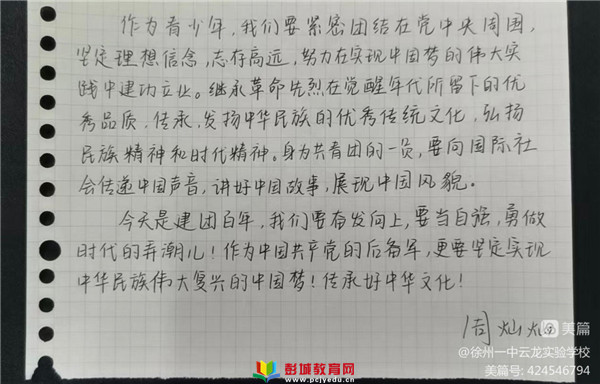 作为青少年，我们要紧密团结在党中央周围，
坚定理想信念，志存高远，努力在实现中国梦的伟大实
践中建功立业。继承革命先烈在觉醒年代所留下的优
秀品质，传承、发扬中华民族的优秀传统文化，弘扬
民族精神和时代精神。身为共青团的一员，要向国际社
会传递中国声音，讲好中国故事，展现中国风貌。
今天是建团百年，我们要奋发向上，要当自强，勇做
时代的弄潮儿！作为中国共产党的后备军，更要坚定实现
中华民族伟大复兴的中国梦！传承好中华文化！
周灿灿
美篇
@徐州一中云龙实验学校
美篇号: 424546794
彭城教育网
www.pcjyedu.cn